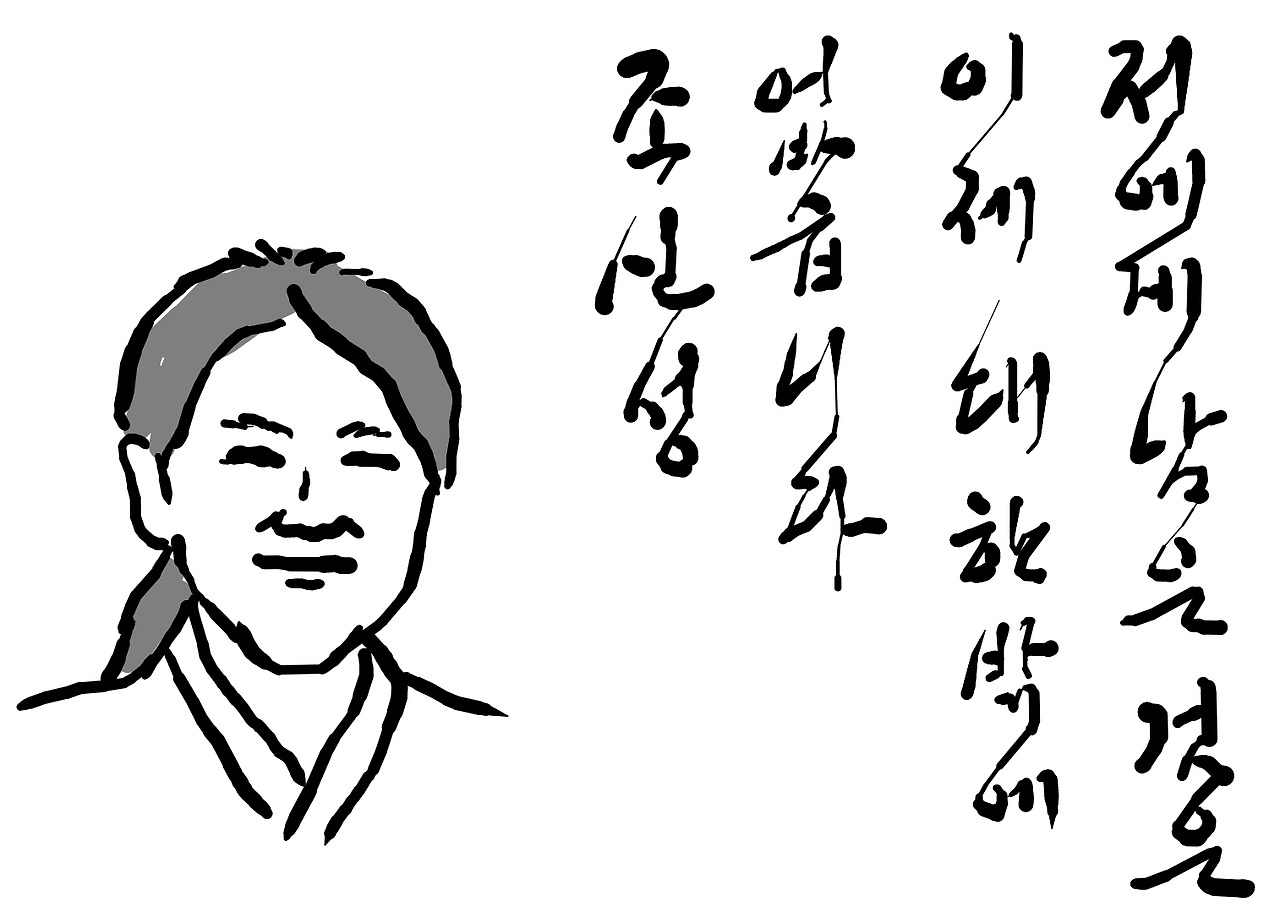 저에게 남은 것은
이제 대한밖에
없습니다
조신성